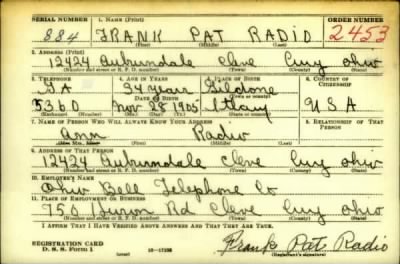 SERIAL NUMBER 1. NAME (Print) ORDER NUMBER
884 FRANK PAT RADIO 2453
(First) (Middle) (Last)
2. ADDRESS (Print)
12424 Auburndale Cleve Cuy ohio
(Number and street or R. F. D. number) (Town) (County) (State)
3. TELEPHONE 4. AGE IN YEARS 5. PLACE OF BIRTH 6. COUNTRY OF CITIZENSHIP
GA 34 years Gildone
DATE OF BIRTH
5360 Nov 28 1905 Italy USA
7. NAME OF PERSON WHO WILL ALWAYS KNOW YOUR ADDRESS 8. RELATIONSHIP OF THAT PERSON
Ann Radio
9. ADDRESS OF THAT PERSON
12424 Auburndale Cleve Cuy ohio
(Number and street or R. F. D. number) (Town) (County) (State)
10. EMPLOYER'S NAME
Ohio Bell Telephone Co
11. PLACE OF EMPLOYMENT OR BUSINESS
750 Huron Rd Cleve Cuy ohio
(Number and street or R. F. D. number) (Town) (County) (State)
I AFFIRM THAT I HAVE VERIFIED ABOVE ANSWERS AND THAT THEY ARE TRUE.
REGISTRATION CARD
D. S. S. FORM 1 (over) 16-17105 Frank Pat Radio